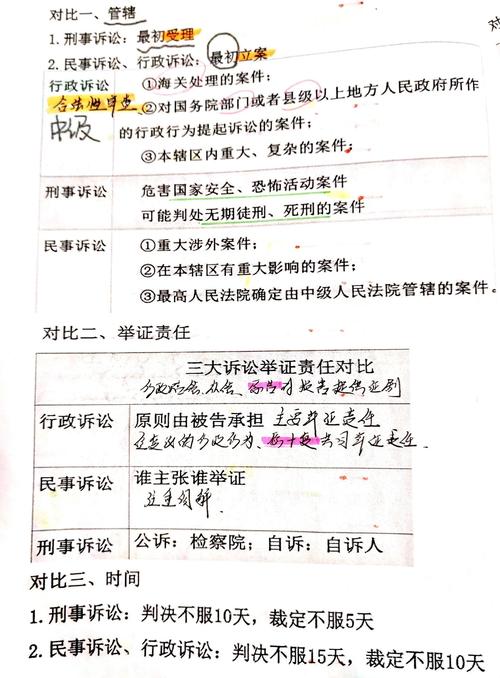 对比一、管辖
1. 刑事诉讼：最初受理
2. 民事诉讼、行政诉讼：最初立案
行政诉讼
合法性审查
中级
①海关处理的案件；
②对国务院部门或者县级以上地方人民政府所作
的行政行为提起诉讼的案件；
③本辖区内重大、复杂的案件；
刑事诉讼
危害国家安全、恐怖活动案件
可能判处无期徒刑、死刑的案件
民事诉讼
①重大涉外案件；
②在本辖区有重大影响的案件；
③最高人民法院确定由中级人民法院管辖的案件。
对比二、举证责任
三大诉讼举证责任对比
行政诉讼
原则由被告承担 主要举证责任
民事诉讼
谁主张谁举证
刑事诉讼
公诉：检察院；自诉：自诉人
对比三、时间
1. 刑事诉讼：判决不服10天，裁定不服5天
2. 民事诉讼、行政诉讼：判决不服15天，裁定不服10天